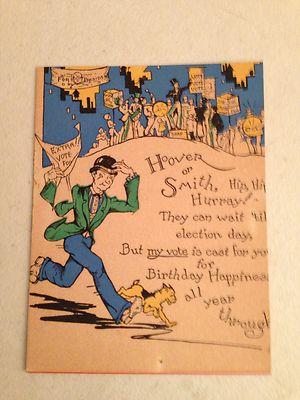 VOTE
VOTE
VOTE
EXTRA!
VOTE
FOR
Hoover
or
Smith, Hip, Hip,
Hurray!
They can wait 'til
election day,
But my vote is cast for you
for
Birthday Happiness
all year
through